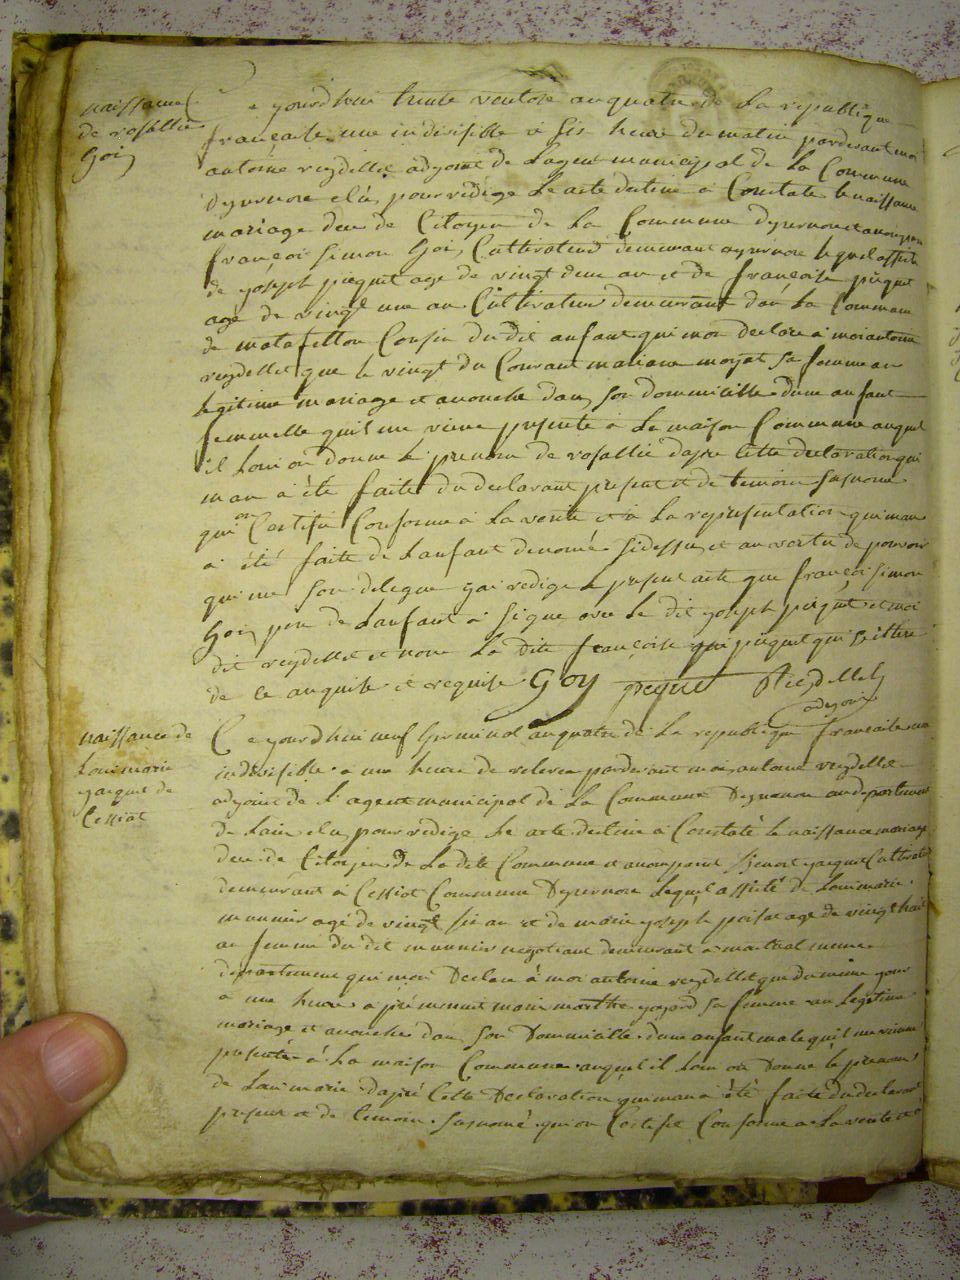 naissance
de rosallie
Goi
Ce yourdhui trente ventose an quatre de La republique
françaisse une indivisible a six heure du matin pardevant moi
antoine reydellet adyoint de Lagent municipal de La Commune
Dyzernore elu pour redige Le acte destine a Constate le naissance
mariage dece de Citoyen de La Commune dyzernore
françois Simon Goi, Cultivateur demeurant a yzernore lequel assisté
de yoseph piquet age de vingt deux an et de françoise piquet
age de vingt une an Cultivateur demeurant dan La Commune
de matafelon Cousin du dit anfant qui mon declare a moi antoine
reydellet que le vingt du Courant mariane moyat sa femme an
legitime mariage et acouche dan son dommicille dune anfant
femmelle quil me vien presenté a Le maison Commune auquel
il Loui on donne le prenom de rosallie dapre Cette declaration qui
man a été faite du declarant present et de temoin susnome
qui on Certifie Conforme a La verité et a La representation qui man
a été faite de Lanfant denomé sidessu, et an vertu de pouvoir
qui me son delegue yai redige Le present acte que françoi simon
Goi, pere de Lanfant a signe avec Le dit yoseph piquet et moi
dit reydellet et non La dite françoise piquet qui est illitere
de ce anquise et requise Goy piquet Reydellet
adyoin
naissance de
Loui marie
yacquet de
Cessiat
Ce yourdhui neuf Germinal an quatre de La republique francaisse une
indivisible a une heure de relevea pardevant moi antoine reydellet
adyoint de Lagent municipal de La Commune Dyzernore au departement
de Lain elu pour redige Le acte destine a Constaté le naissance mariage
dece de Citoyen De La dite Commune et a Conparu Benoit yacquet Cultivateur
demeurant a Cessiat Commune Dyzernore Lequel assisté de Loui marie
munnier agé de vingt six an et de marie yoseph age de vingt huit
an femme du dit munnier negotiant demeurant a martinat meme
departemene qui mon Declare a moi antoine reydellet que du meme your
a une heure a pre menuit marie marthe goyard sa femme an Legitime
mariage et acouché dan son Dommicille dune anfant male quil me vienne
presenté a La maison Commune auquel il Loui on Donne Le prenom
de Loui marie dapré Cette Declaration qui man a été faite du declarant
present et de temoin susnomé qui on Certifie Conforme a La verite et a